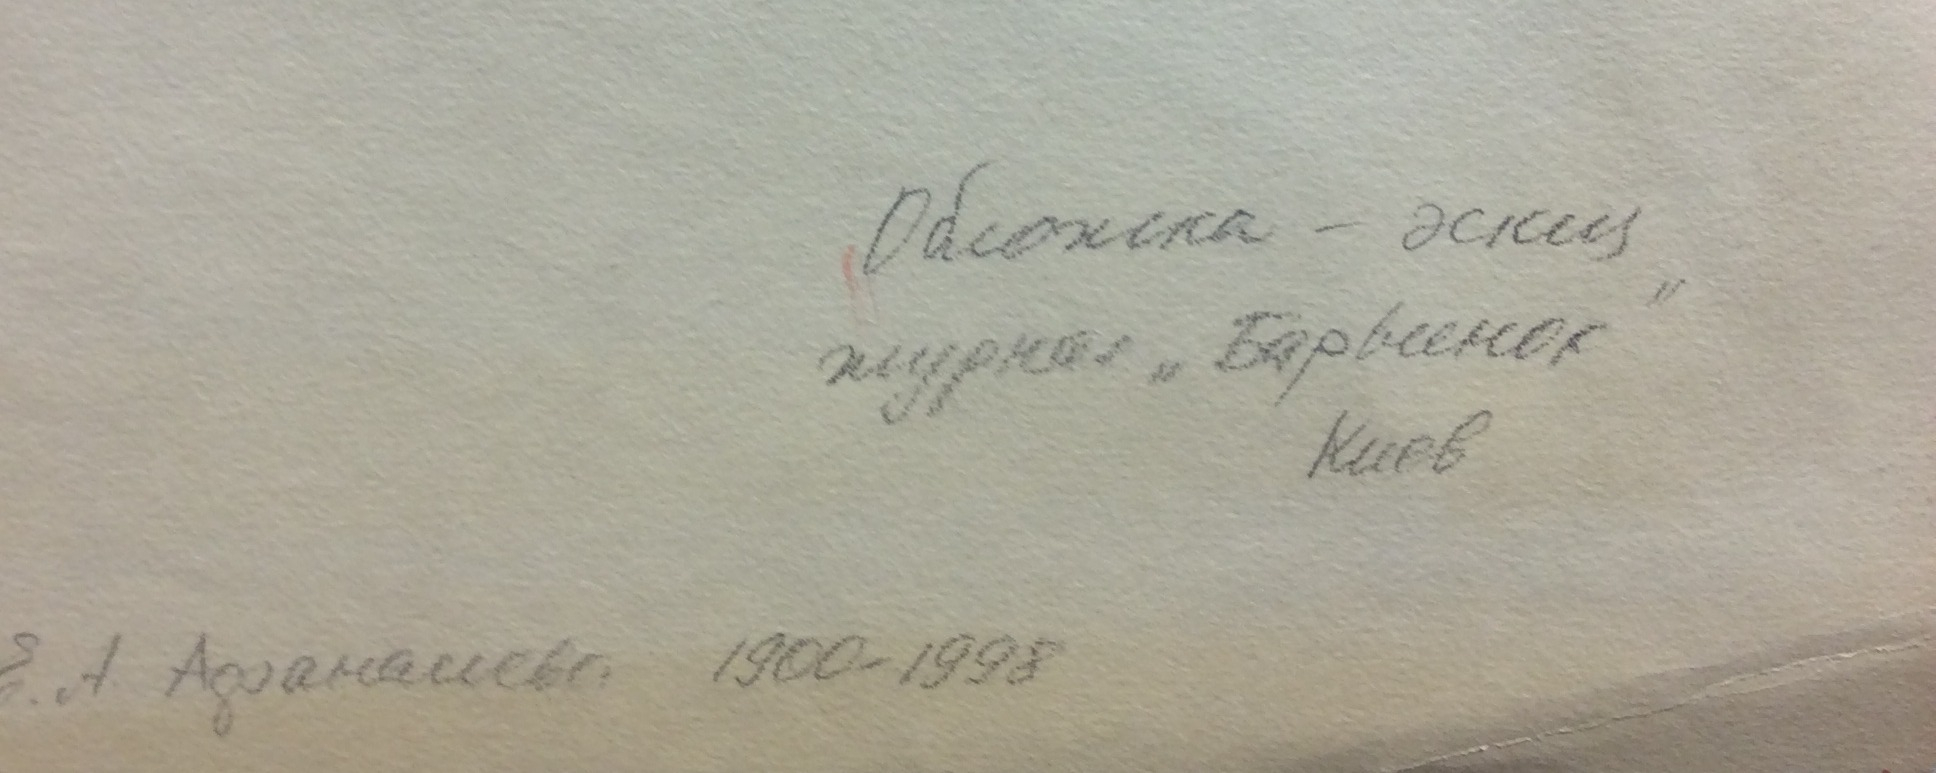 Обложка – эскиз
журнал „Барвинок"
Киев
Е. А. Афанасьева 1900-1998